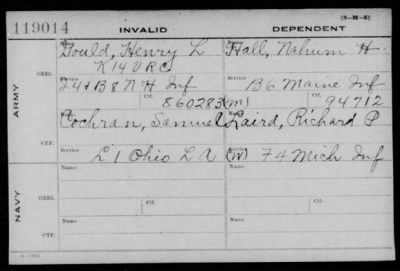 119014
INVALID
DEPENDENT
(3-H-3)
ARMY
ORIG.
Gould, Henry L
K 14 V R C
Service
I 4 & B 8 N H Inf
Ctf.
860283
Hall, Nahum H.
Service
B 6 Maine Inf
Ctf.
(M) 94712
CTF.
Cochran, Samuel P
Service
L 1 Ohio L A
Laird, Richard P
(W) 74 Mich Inf
NAVY
ORIG.
Name
Ctf.
Name
Ctf.
CTF.
Name
Name